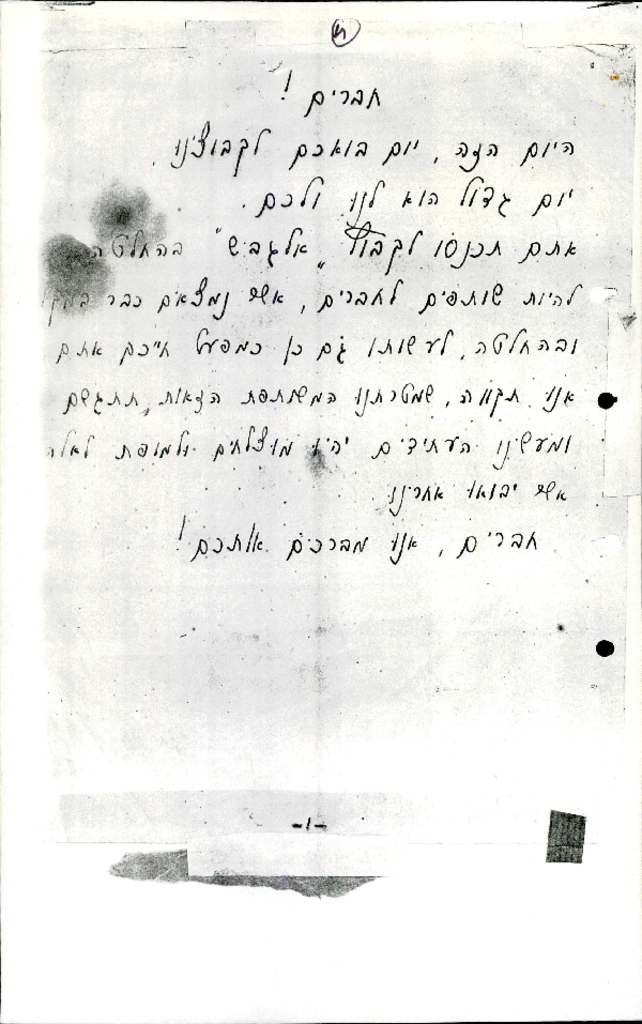 חברים !
היום הזה, יום בואכם לקבוצינו,
יום גדול הוא לנו ולכם.
אתם תכנסו לקבוץ "אלגביש" בהחלטה
להיות שותפים לחברים, אשר נמצאים כבר
ובהחלטה, לעשותו גם כן כמפעל חייכם אתם
אנו תקווה, שמטרתנו המשותפת הזאות, תתגשם
ומעשינו העתידים יהיו מוצלחים ולמופת לאלה
אשר יבואו אחרינו
חברים, אנו מברכים אותכם!
-1-